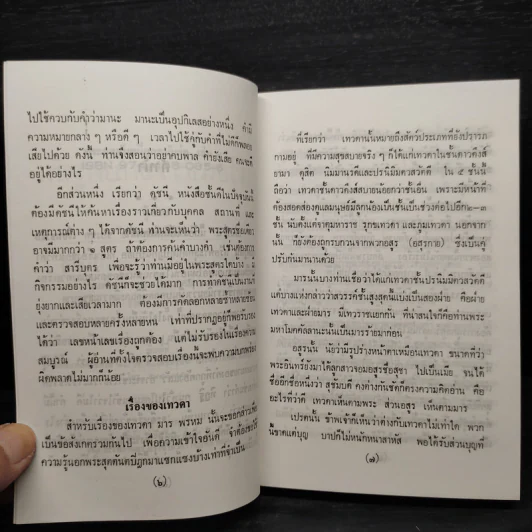 ไปใช้ควบกับคำว่ามานะ มานะเป็นอุปกิเลสอย่างหนึ่ง คำมี
ความหมายกลาง ๆ หรือดี ๆ เวลาไปใช้คู่กับคำที่ไม่ดีก็พลอย
เสียไปด้วย ดังนั้น ท่านจึงสอนว่าอย่าคบพาล คำยังเสีย คนจะดี
อยู่ได้อย่างไร
อีกส่วนหนึ่ง เรียกว่า ดัชนี หนังสือชั้นดีในปัจจุบันนี้
ต้องมีดัชนีให้ค้นหาเรื่องราวเกี่ยวกับบุคคล สถานที่ และ
เหตุการณ์ต่าง ๆ ได้จากดัชนี ท่านจะเห็นว่า พระสูตรชื่อเดียว
อาจมีมากกว่า ๑ สูตร ถ้าต้องการค้นคำบางคำ เช่นต้องการ
คำว่า สารีบุตร เพื่อจะรู้ว่าท่านมีอยู่ในพระสูตรใดบ้าง มี
กิจกรรมอย่างไร ดัชนีก็จะช่วยได้มาก การทำดัชนีเป็นงานที่
ยุ่งยากและเสียเวลามาก ต้องมีการคัดลอกหลายซ้ำหลายซ้อน
และตรวจสอบหลายครั้งหลายหน เท่าที่ปรากฏอยู่ก็พอรับรอง
ได้ว่า เลขหน้าเลขเรื่องถูกต้อง แต่ไม่รับรองในเรื่องความ
สมบูรณ์ ผู้อ่านที่ตั้งใจตรวจสอบเรื่องนี้จะพบความบกพร่อง
ผิดพลาดไม่มากก็น้อย
เรื่องของเทวดา
สำหรับเรื่องของเทวดา มาร พรหม นั้นจะขอกล่าวเพื่อ
เป็นข้อสังเกตรวมกันไป เพื่อความเข้าใจอันดี จำต้องขอใช้
ความรู้นอกพระสุตตันตปิฎกมาแซกแซงบ้างเท่าที่จำเป็น
(๖)
ที่เรียกว่า เทวดานั้นหมายถึงสัตว์ประเภทที่ยังปรารภ
กามอยู่ ที่มีความสุขสบายจริง ๆ ก็ได้แก่เทวดาในชั้นดาวดึงส์
ยามา ดุสิต นิมมานรดีและปรนิมมิตวสวัตดี ใน ๕ ชั้นนี้
ถือว่า เทวดาชั้นดาวดึงส์สบายน้อยกว่าชั้นอื่น เพราะมีหน้าที่
ต้องสอดส่องดูแลมนุษย์มีลูกน้องเป็นชั้นเป็นช่วงต่อไปอีก ๒-๓
ชั้น นับตั้งแต่จาตุมหาราช รุกขเทวดา และภุมเทวดา นอกจาก
นั้น ก็ยังต้องถูกรบกวนจากพวกอสุร (อสุรกาย) ซึ่งเป็นคู่
ปรับกันมานานด้วย
มารนั้นบางท่านเชื่อว่าได้แก่เทวดาชั้นปรนิมมิตวสวัตดี
แต่บางแห่งกล่าวว่าสวรรค์ชั้นสูงสุดนั้นแบ่งเป็นสองฝ่าย คือฝ่าย
เทวดาและฝ่ายมาร มีเทวราชแยกกัน ที่น่าสนใจก็คือท่านพระ
มหาโมคคัลลานะนั้นเป็นมารร้ายมาก่อน
อสุรนั้น นัยว่ามีรูปร่างหน้าตาเหมือนเทวดา ขนาดที่ว่า
พระอินทร์ยังมาได้ลูกสาวจอมอสูรชื่อสุชา ไปเป็นเมีย จนได้
ชื่ออีกชื่อหนึ่งว่า สุชัมบดี คงต่างกันชัดก็ตรงความคิดอ่าน คือ
อะไรที่ว่าดี เทวดาเห็นตามพระ ส่วนอสุร เห็นตามมาร
เปรตนั้น ข้าพเจ้าก็เห็นว่าต่างกับเทวดาไม่เท่าใด พวก
นี้ขาดแต่บุญ บาปก็ไม่หนักหนาสาหัส พอได้รับส่วนบุญที่
(๗)